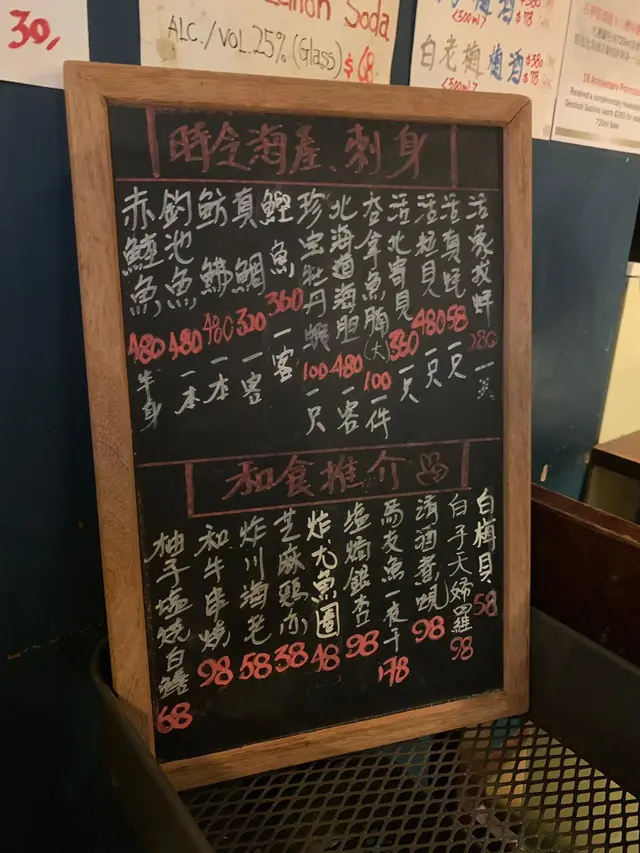 30,
Soda
ALC./VOL.25% (Glass) $68
<500ml> $78
白老梅 梅酒 $380
<500ml> $78
18 Anniversary Promotion
720ml Sake
時令海產、刺身
活象拔蚌 280
活真蚝 58 一只
活粒貝 480 一只
活北寄貝 360 一只
吞拿魚腩(大) 100 一件
北海道海胆 480 一客
珍宝牡丹蝦 100 一只
鰹魚 360 一客
真鯛 320 一客
魴鮄 480 一本
釣池魚 480 一本
赤鯥魚 480 半身
和食推介
白梅貝 58
白子天婦羅 98
清酒煮蜆 98
馬友魚一夜干 178
塩焗銀杏 98
炸尤魚圈 48
芝麻鶏 38
炸川海老 58
和牛串燒 98
柚子塩燒白鱔 68